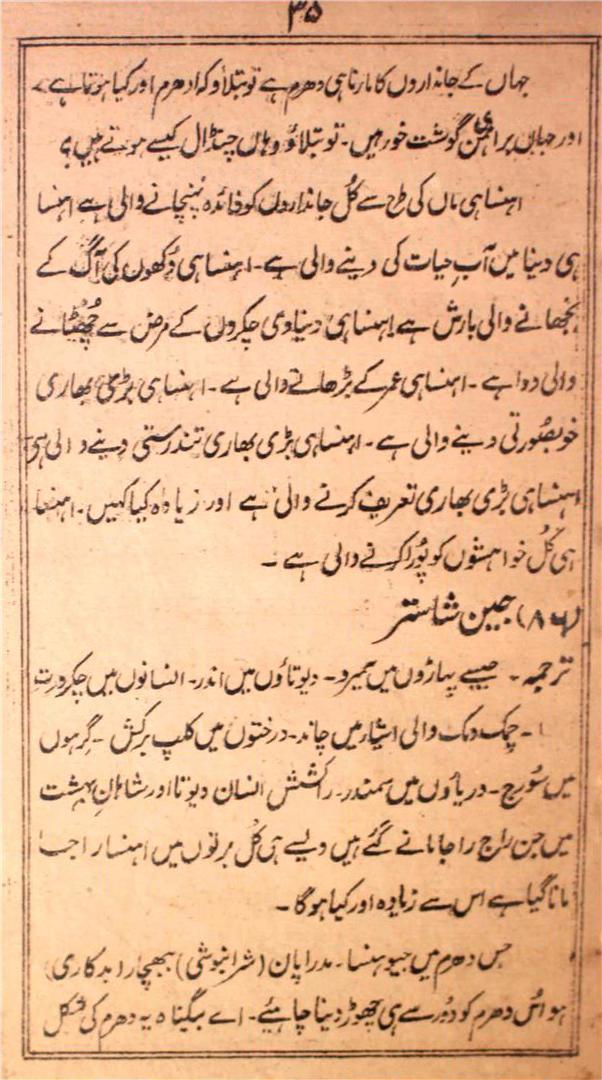 ۳۵
جہاں کے جانداروں کا مارنا ہی دھرم ہے تو بتلاؤ کہ ادھرم اور کیا ہوتا ہے۔
اور جہاں براہمن ہی گوشت خور ہیں۔ تو بتلاؤ وہاں چنڈال کیسے ہوتے ہیں؟
اہنسا ہی ماں کی طرح سے کُل جانداروں کو فائدہ پہنچانے والی ہے اہنسا
ہی دنیا میں آبِ حیات کی دینے والی ہے۔ اہنسا ہی دُکھوں کی آگ کے
بُجھانے والی بارش ہے اہنسا ہی دنیاوی چکروں کے مرض سے چُھٹانے
والی دوا ہے۔ اہنسا ہی عمر کے بڑھانے والی ہے۔ اہنسا ہی بڑی بھاری
خوبصُورتی دینے والی ہے۔ اہنسا ہی بڑی بھاری تندرستی دینے والی ہی
اہنسا ہی بڑی بھاری تعریف کرنے والی ہے اور زیادہ کیا کہیں۔ اہنسا
ہی کُل خواہشوں کو پُورا کرنے والی ہے۔
(۸۶) جین شاستر
ترجمہ۔ جیسے پہاڑوں میں میرو۔ دیوتاؤں میں اندر۔ انسانوں میں چکرورت
۔ چمک دمک والی اشیار میں چاند۔ درختوں میں کلپ برکش۔ گرہوں
میں سُورج۔ دریاؤں میں سمندر۔ راکشش انسان دیوتا اور شاہانِ بہشت
میں جن راج راجا مانے گئے ہیں ویسے ہی کُل برتوں میں اہنسا راجا
مانا گیا ہے اس سے زیادہ اور کیا ہوگا۔
جس دھرم میں جیو ہنسا۔ مدراپان (شرابنوشی) ببھچار (بدکاری)
ہو اُس دھرم کو دُور سے ہی چھوڑ دینا چاہیئے۔ اے بیگناہ یہ دھرم کی شکل